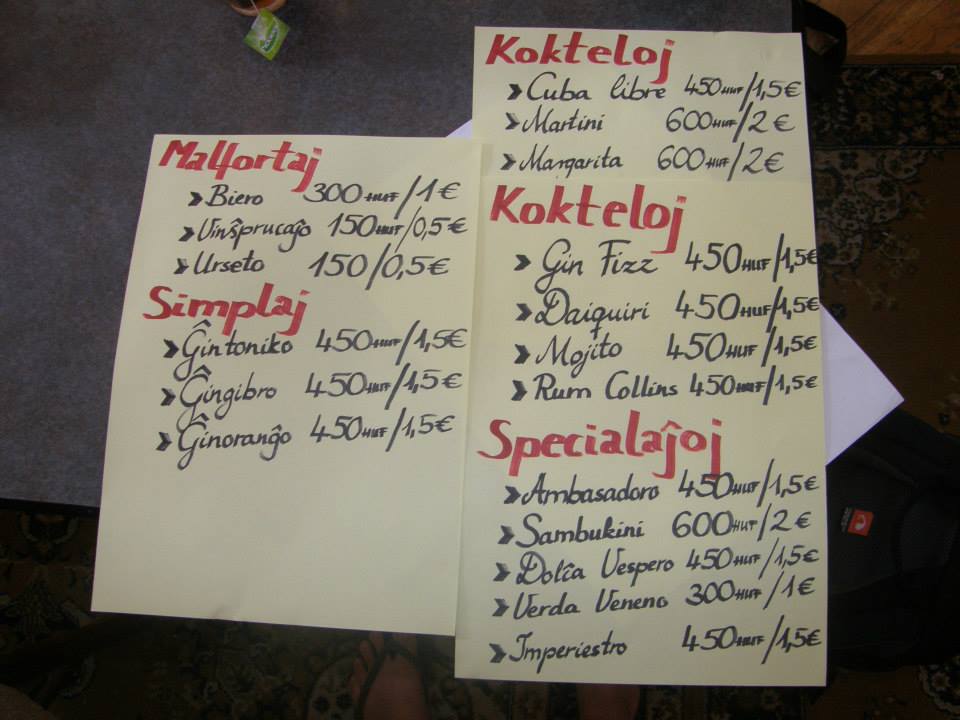 Malfortaj
Biero 300 HUF/1€
Vinŝprucaĵo 150 HUF/0,5€
Urseto 150/0,5€
Simplaj
Ĝintoniko 450 HUF/1,5€
Ĝingibro 450 HUF/1,5€
Ĝinoranĝo 450 HUF/1,5€
Kokteloj
Cuba libre 450 HUF/1,5€
Martini 600 HUF/2€
Margarita 600 HUF/2€
Kokteloj
Gin Fizz 450 HUF/1,5€
Daiquiri 450 HUF/1,5€
Mojito 450 HUF/1,5€
Rum Collins 450 HUF/1,5€
Specialaĵoj
Ambasadoro 450 HUF/1,5€
Sambukini 600 HUF/2€
Dolĉa Vespero 450 HUF/1,5€
Verda Veneno 300 HUF/1€
Imperiestro 450 HUF/1,5€